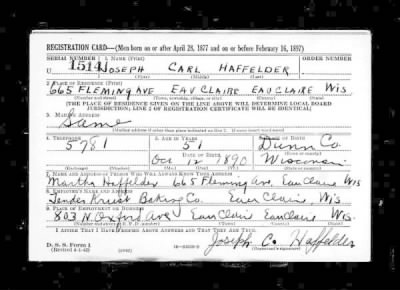 REGISTRATION CARD—(Men born on or after April 28, 1877 and on or before February 16, 1897)
SERIAL NUMBER 1. NAME (Print) ORDER NUMBER
U 1514 JOSEPH CARL HAFFELDER
(First) (Middle) (Last)
2. PLACE OF RESIDENCE (Print)
665 FLEMING AVE EAU CLAIRE EAU CLAIRE WIS
(Number and street) (Town, township, village, or city) (County) (State)
[THE PLACE OF RESIDENCE GIVEN ON THE LINE ABOVE WILL DETERMINE LOCAL BOARD
JURISDICTION; LINE 2 OF REGISTRATION CERTIFICATE WILL BE IDENTICAL]
3. MAILING ADDRESS
Same
4. TELEPHONE 5. AGE IN YEARS 6. PLACE OF BIRTH
5781 51 Dunn Co.
DATE OF BIRTH (Town or county)
Oct 12 1890 Wisconsin
(Exchange) (Number) (Mo.) (Day) (Yr.) (State or country)
7. NAME AND ADDRESS OF PERSON WHO WILL ALWAYS KNOW YOUR ADDRESS
Martha Haffelder 665 Fleming Ave, Eau Claire Wis
8. EMPLOYER'S NAME AND ADDRESS
Tender Krust Baking Co. Eau Claire, Wis
9. PLACE OF EMPLOYMENT OR BUSINESS
803 N. Oxford Ave Eau Claire Eau Claire Wis.
(Number and street or R. F. D. number) (Town) (County) (State)
I AFFIRM THAT I HAVE VERIFIED ABOVE ANSWERS AND THAT THEY ARE TRUE.
D. S. S. Form 1
(Revised 4-1-42) (over) Joseph C. Haffelder
(Registrant's signature)